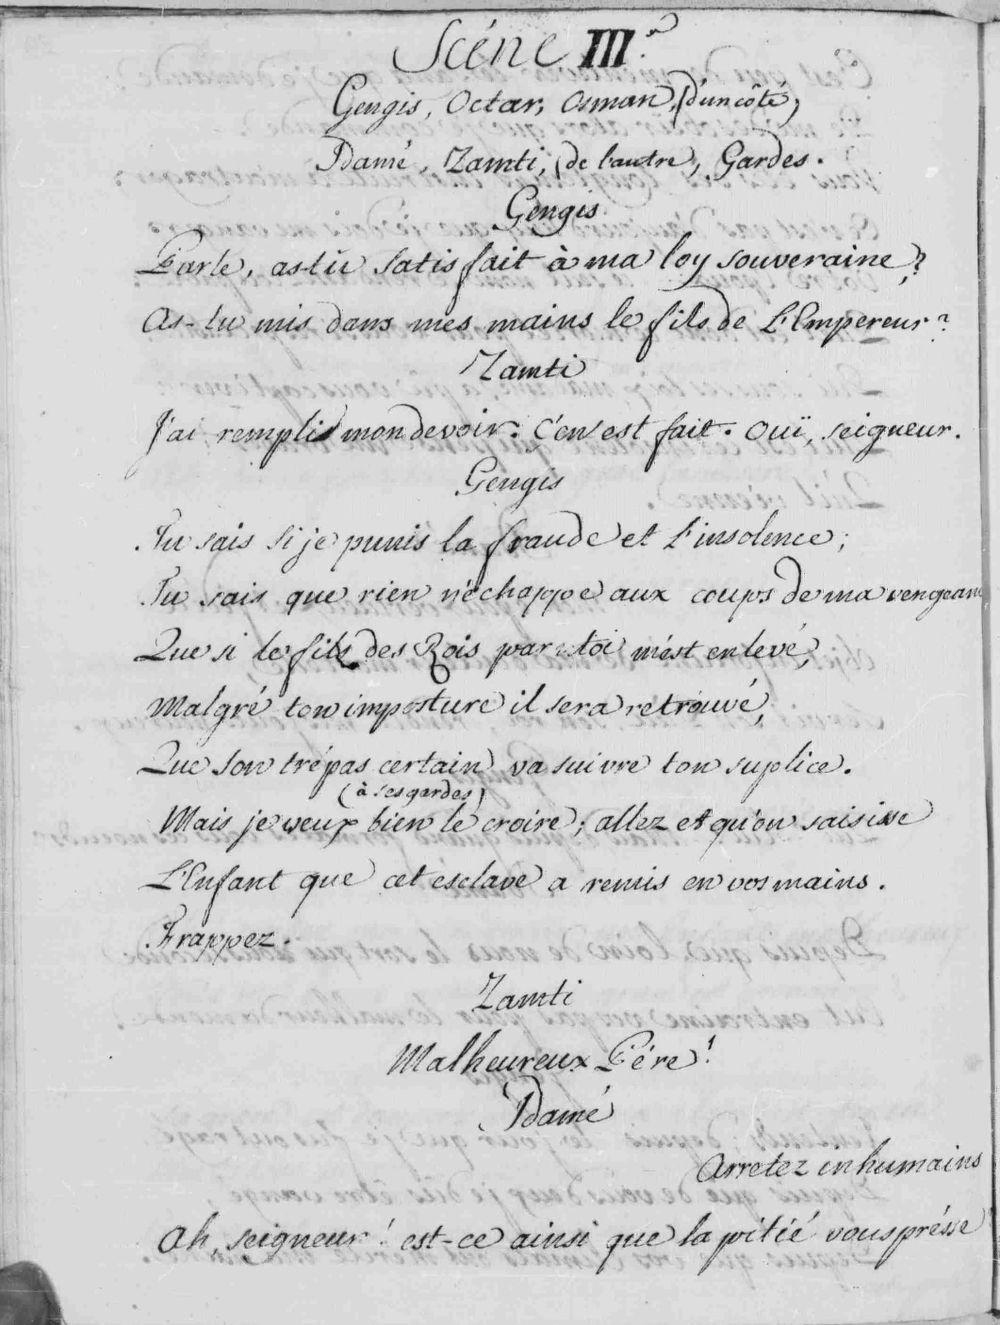 Scéne III.e
Gengis, Octar, Osman, (d'un côté,
Idamé, Zamti, (de l'autre, Gardes.
Gengis
Parle, as-tu satisfait à ma loy souveraine?
As-tu mis dans mes mains le fils de L'Empereur?
Zamti
J'ai rempli mon devoir: C'en est fait. Ouï, seigneur.
Gengis
Tu sais si je punis la fraude et L'insolence;
Tu sais que rien n'échappe aux coups de ma vengeanc
Que si le fils des Rois par toi m'est enlevé,
Malgré ton imposture il sera retrouvé,
Que son trépas certain va suivre ton suplice.
(à ses gardes)
Mais je veux bien le croire; allez et qu'on saisisse
L'Enfant que cet esclave a remis en vos mains.
Frappez.
Zamti
Malheureux Pére!
Idamé
Arretez inhumains
Ah, seigneur! est-ce ainsi que la pitié vous présse